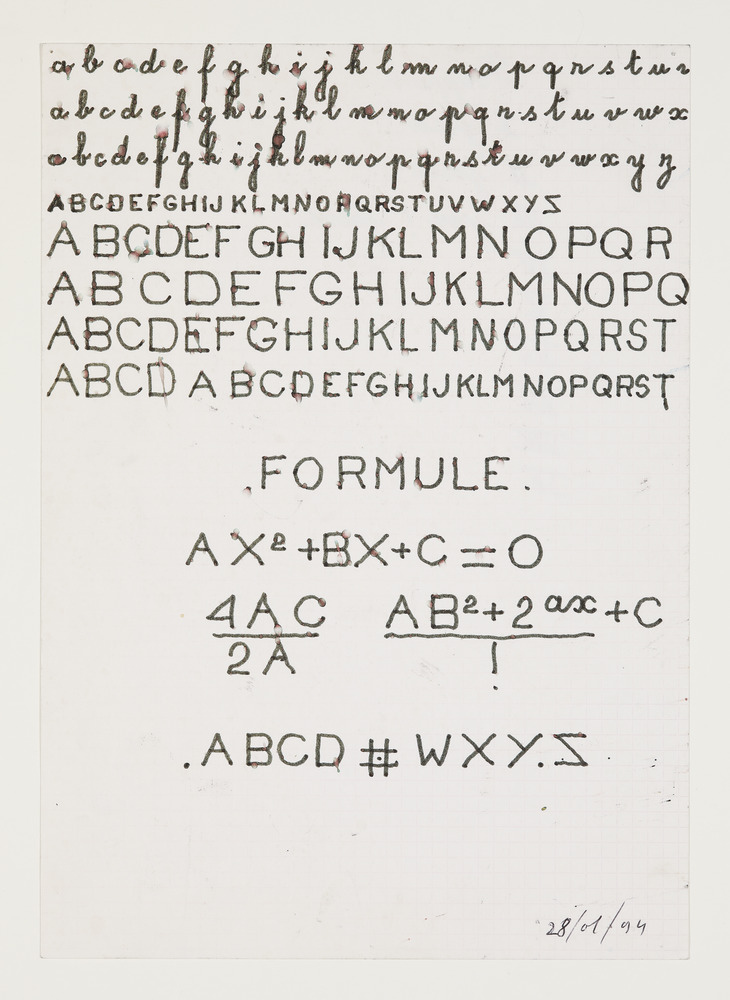 a b c d e f g h i j k l m n o p q r s t u v
a b c d e f g h i j k l m n o p q r s t u v w x
a b c d e f g h i j k l m n o p q r s t u v w x y z
ABCDEFGHIJKLMNOPQRSTUVWXYZ
ABCDEFGHIJKLMNOPQR
ABCDEFGHIJKLMNOPQ
ABCDEFGHIJKLMNOPQRST
ABCD ABCDEFGHIJKLMNOPQRST
.FORMULE.
AX²+BX+C=0
4AC AB²+2ax+C
2A !
.ABCD # WXY.Z
28/01/94